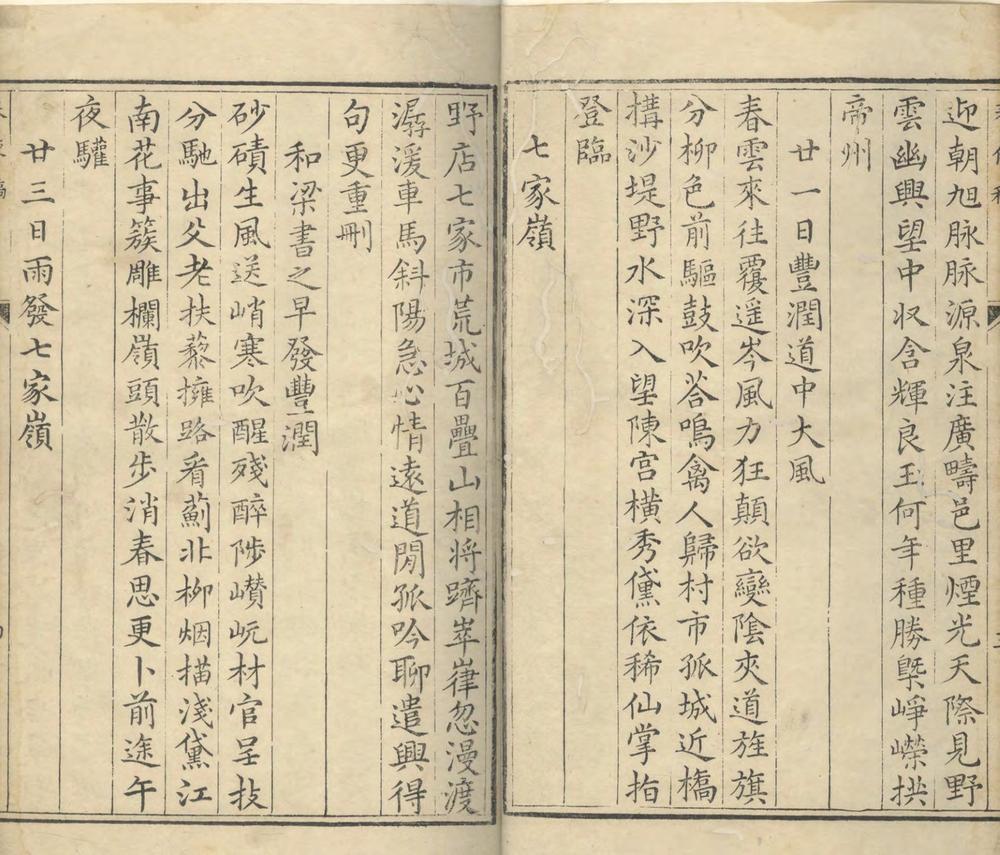 迎朝旭脉脉源泉注廣疇邑里煙光天際見野
雲幽興望中収含輝良玉何年種勝槩崢嶸拱
帝州
廿一日豐潤道中大風
春雲來往覆遥岑風力狂顛欲變陰夾道旌旗
分柳色前驅鼓吹荅鳴禽人歸村市孤城近橋
搆沙堤野水深入望陳宫橫秀黛依稀仙掌拍
登臨
七家嶺
野店七家市荒城百疊山相将躋崒嵂忽漫渡
潺湲車馬斜陽急心情遠道閒孤吟聊遣興得
句更重刪
和梁書之早發豐潤
砂磧生風送峭寒吹醒殘醉陟巑岏材官呈技
分馳出父老扶藜擁路看薊北柳烟描淺黛江
南花事簇雕欄嶺頭散步消春思更卜前途午
夜驩
廿三日雨發七家嶺